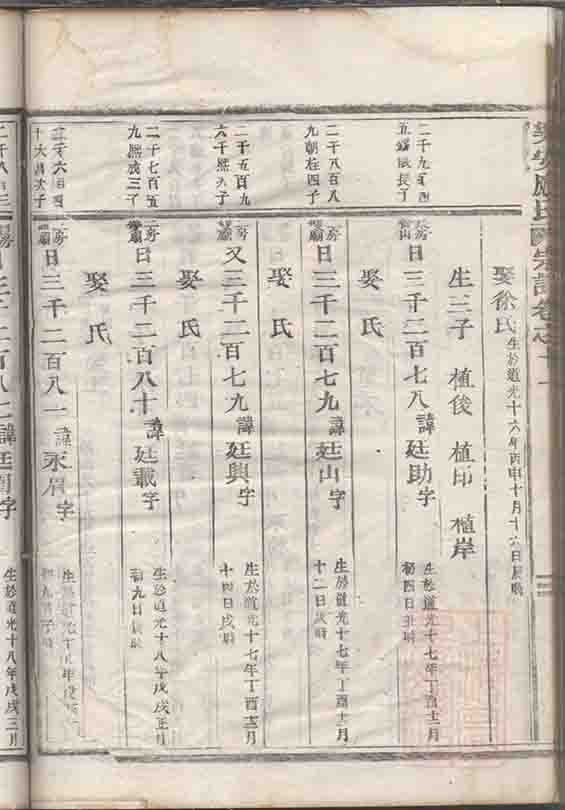 氏宗譜卷之十一
娶徐氏 生於道光十六年丙申十月十六日辰時
生三子 植俊 植印 植岸
二千九百
日三千二百七八諱廷助字 生於道光十七年丁酉十二月初四日丑時
娶氏
二千八百八九朝柱四子
二房 日三千二百七九諱廷山字 生於道光十七年丁酉十二月十二日戌時
娶氏
二千五百九六千熙九子
二房 又三千二百七九諱廷興字 生於道光十七年丁酉十二月十四日戌時
娶氏
二千七百五九熙成三子
二房 日三千二百八十諱廷載字 生於道光十八年戊戌正月初九日辰時
娶氏
房 日三千二百八一諱永眉字 生於道光十八年戊戌
日三千二百八二諱廷眉字 生於道光十八年戊戌三月